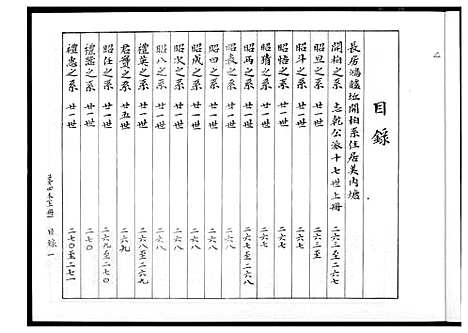 目錄
長房鴻臚坵開柏系住居美內塘
開柏之系 志乾公派十七世上冊 二六三至二六七
昭旦之系 廿一世 二六三至
昭斗之系 廿一世 二六七
昭悟之系 廿一世 二六七
昭猜之系 廿一世 二六七
昭両之系 廿一世 二六七至二六八
昭長之系 廿一世 二六八
昭四之系 廿一世 二六八
昭成之系 廿一世 二六八
昭次之系 廿一世 二六八
昭八之系 廿一世 二六八
禮英之系 廿一世 二六八至二六九
君賢之系 廿五世 二六九
昭任之系 廿一世 二六九至二七〇
禮謡之系 廿一世 二七〇
禮忠之系 廿一世 二七〇至二七一
目錄一